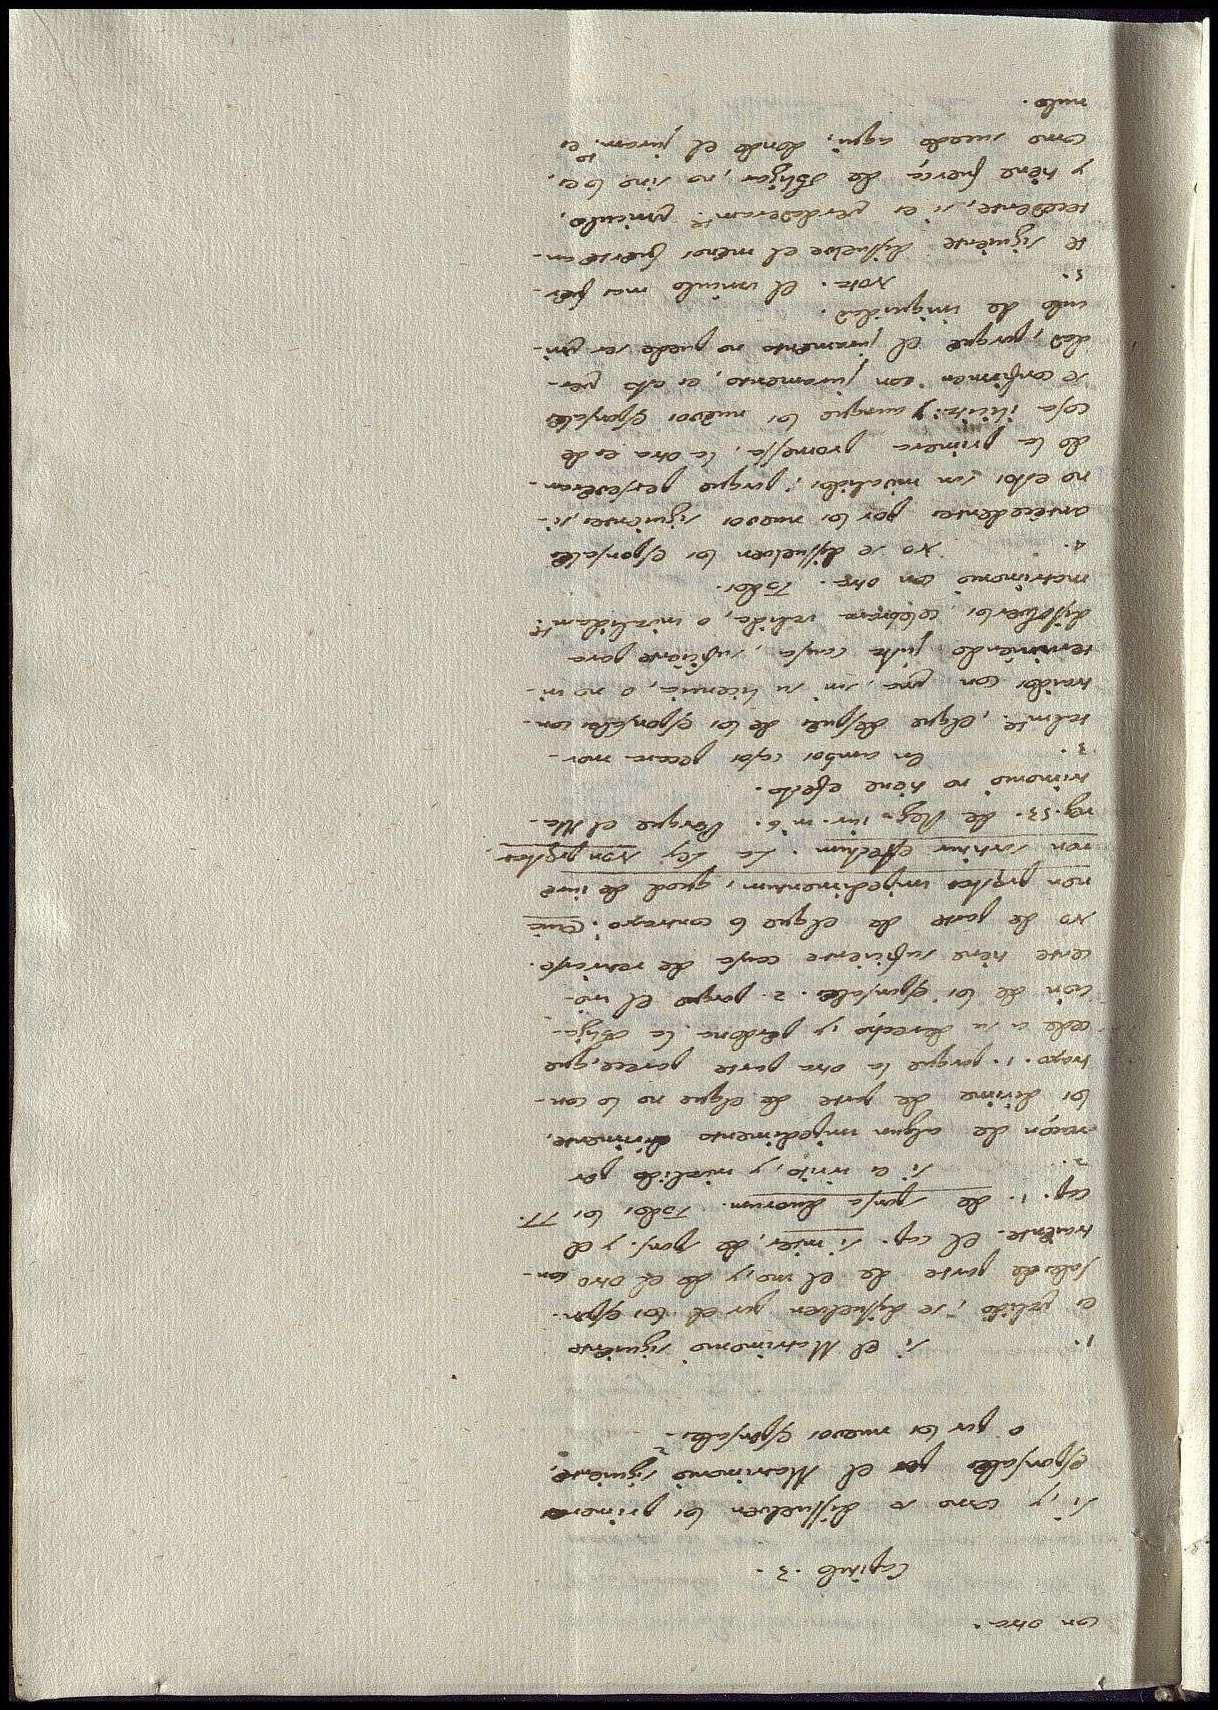 con otra.
Capitulo. 3.
Si, y como se dissuelven los primeros
esponsales por el Matrimonio siguiente,
o por los nuevos esponsales.
1. Si el Matrimonio siguiente
es valido, se dissuelven por el los espon-
sales de parte de el uno, y de el otro con-
traiente. El cap. si inter, de spons. y el
cap. 1. de sponsa duorum. Todos los TT.
2. Si es irrito, y invalido por
raçon de algun impedimento dirimente,
los dirime de parte de elque no lo con-
traxo. 1. porque la otra parte parece, que
cede a su derecho, y perdona la obliga-
cion de los esponsales. 2. porque el ino-
cente tiene suficiente causa de retirarse.
No de parte de elque lo contraxo: Quia
non præstat impedimentum, quod de iure
non sortitur effectum. La ley Non præstat.
reg. 52. de Reg. iur. in 6. Porque el Ma-
trimonio no tiene efecto.
3. En ambos casos pecara mor-
talmte. elque despues de los esponsales con-
traidos con una, sin su licencia, o no in-
terviniendo justa causa, suficiente para
dissolverlos, celebrara valida, o invalidamte.
matrimonio con otra. Todos.
4. No se dissuelven los esponsales
antecedentes por los nuevos siguientes, si-
no estos son invalidos; porque perseveran-
do la primera promessa, la otra es de
cosa ilicita: y aunque los nuevos esponsales
se confirmen con juramento, es esto ver-
dad, porque el juramento no puede ser vin-
culo de iniquidad.
5. Nota. El vinculo mas fuer-
te siguiente dissuelve el menos fuerte an-
tecedente, si es verdaderamte. vinculo,
y tiene fuerça de obligar, no sino lo es,
como sucede aqui, donde el juramto. es
nulo.